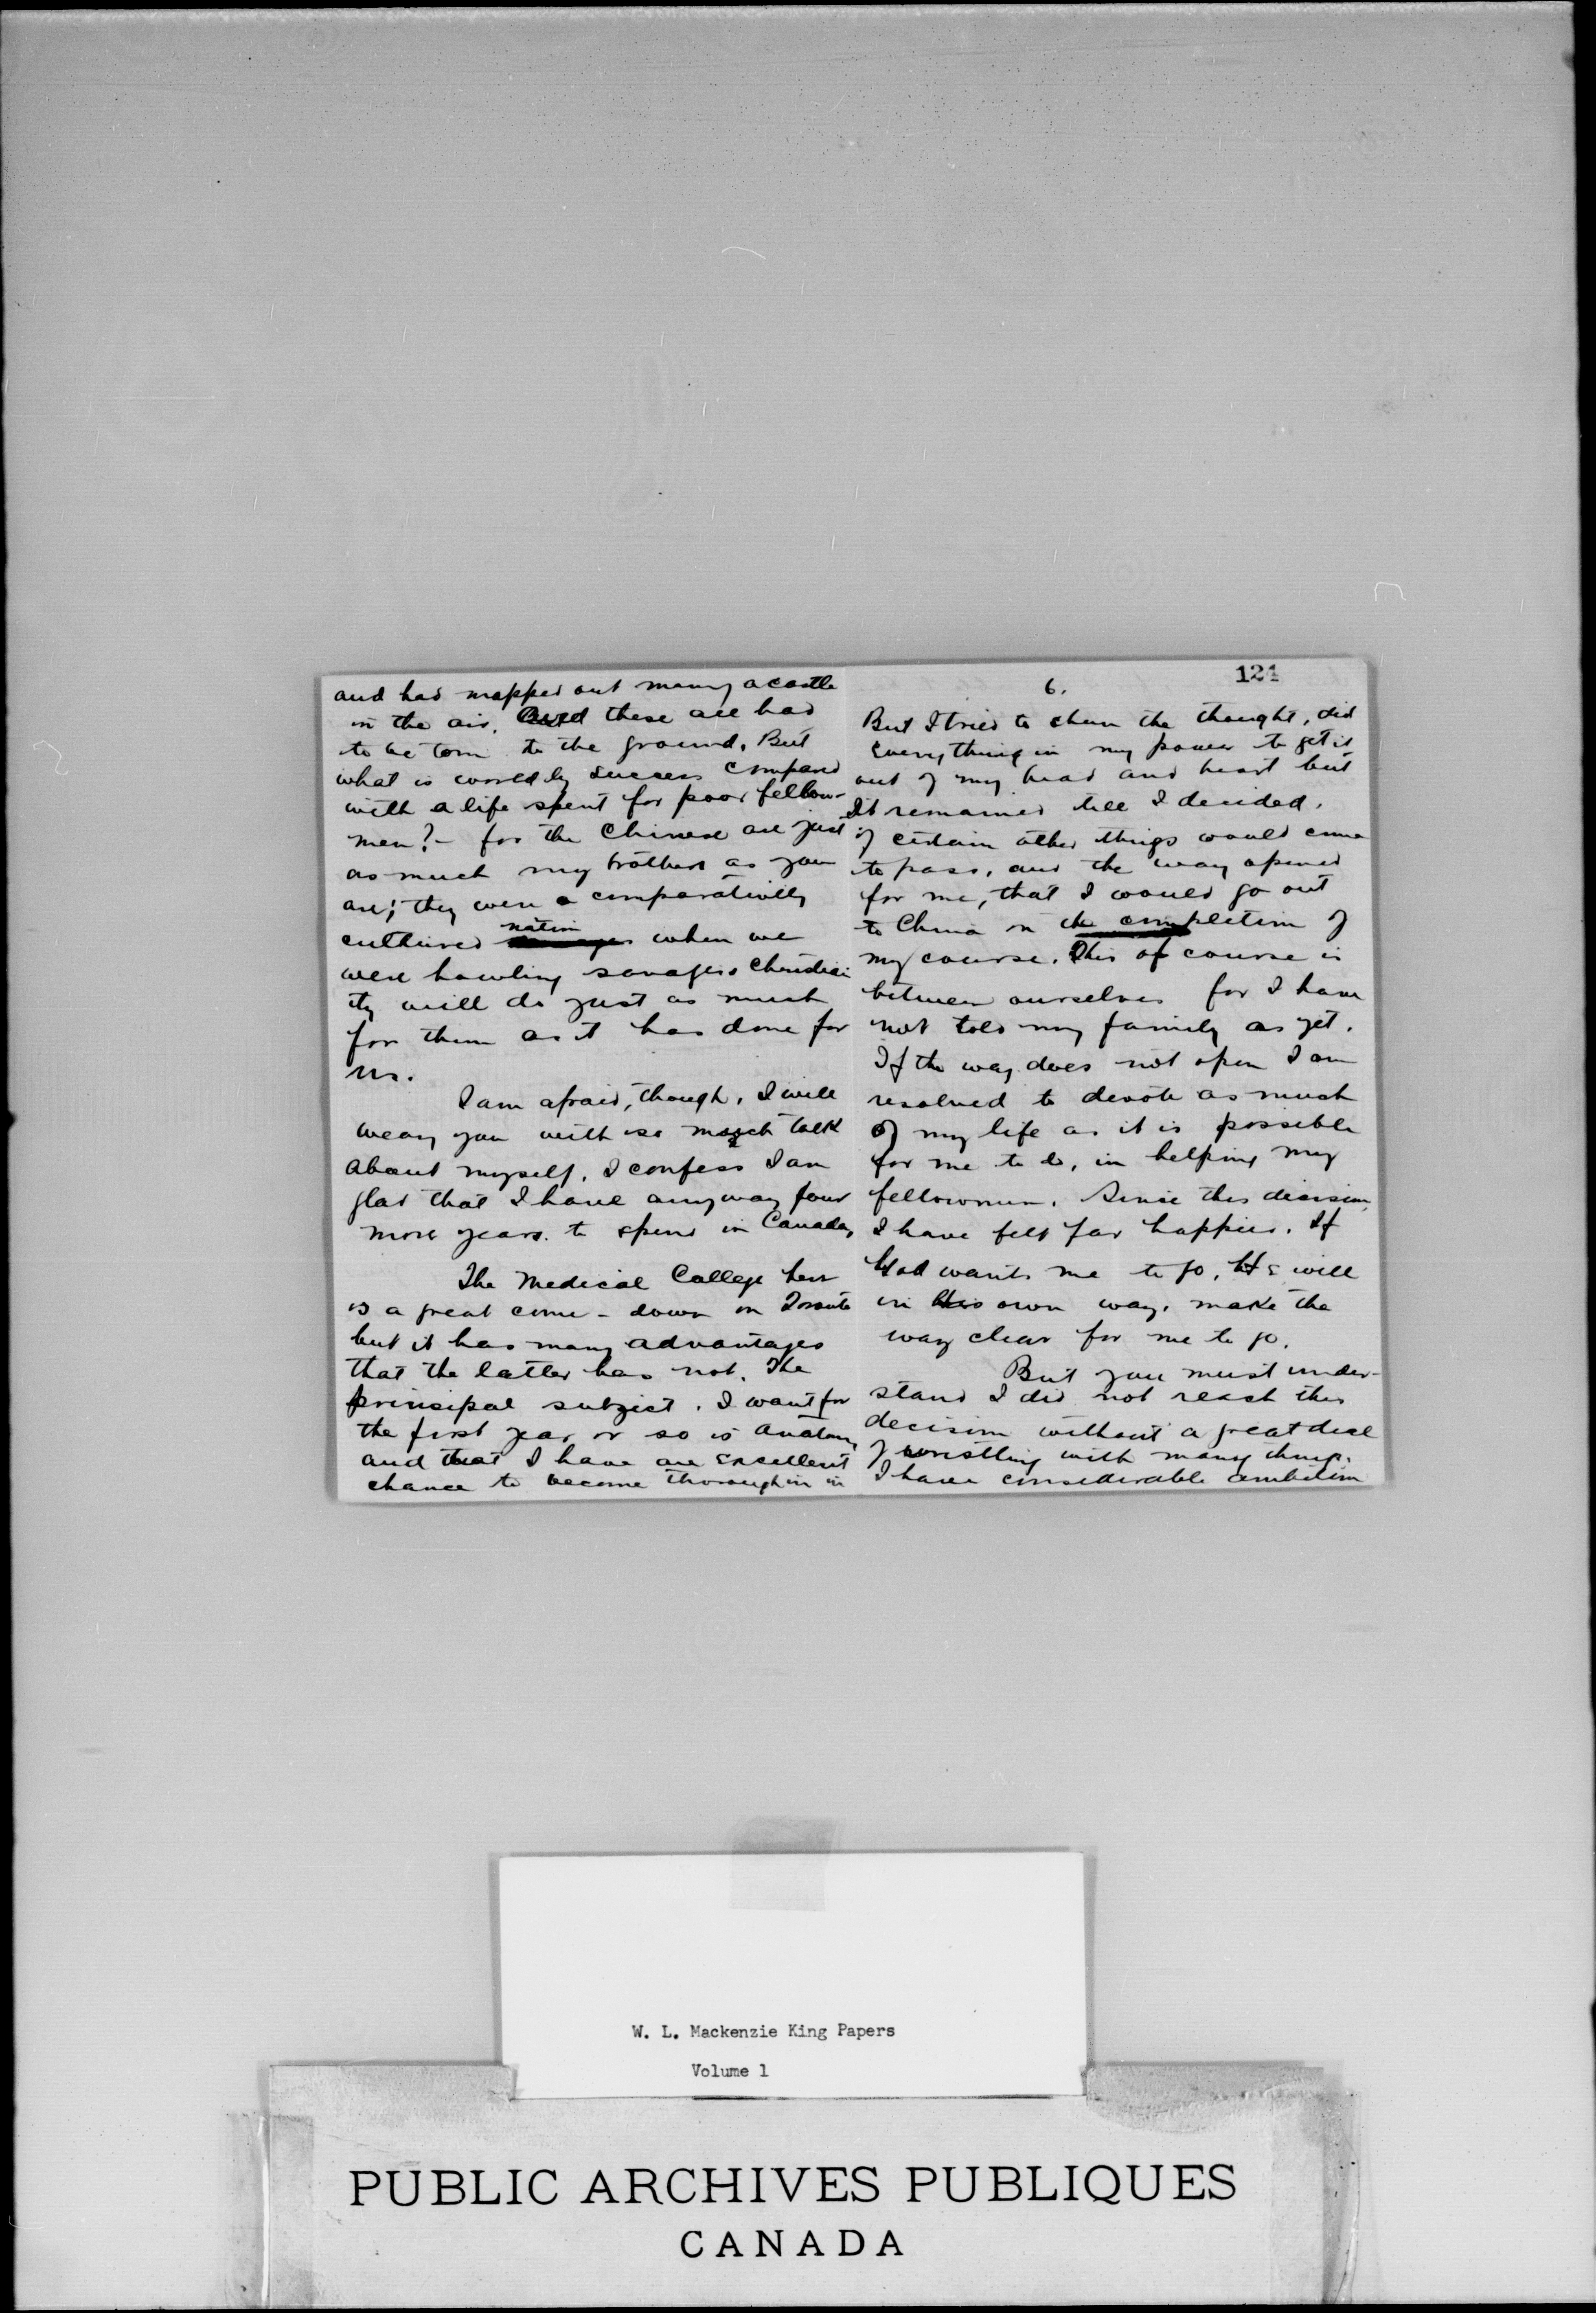 and had mapped out many a castle
in the air. And these all had
to be torn to the ground. But
what is worldly success compared
with a life spent for poor fellow-
men? - for the Chinese are just
as much my brothers as you
are; they were a comparatively
nation
cultured when we
were howling savages. Christian
ity will do just as much
for them as it has done for
us.
I am afraid, though, I will
weary you with so much talk
about myself. I confess I am
glad that I have anyway four
more years to spend in Canada,
The Medical College here
is a great come-down on Toronto
but it has many advantages
that the latter has not. The
principal subject I want for
the first year or so is anatomy
and that I have an excellent
chance to become thorough in
6.
121
But I tried to shun the thought, did
everything in my power to get it
out of my head and heart but
It remained till I decided,
if certain other things would come
to pass, and the way opened
for me, that I would go out
to China on the completion of
my course. This of course is
between ourselves for I have
not told my family as yet.
If the way does not open I am
resolved to devote as much
of my life as it is possible
for me to do, in helping my
fellowmen. Since this decision,
I have felt far happier. If
God wants me to go, He will
in His own way, make the
way clear for me to go.
But you must under-
stand I did not reach this
decision without a great deal
of wrestling with many things.
I have considerable ambition
W. L. Mackenzie King Papers
Volume 1
PUBLIC ARCHIVES PUBLIQUES
CANADA